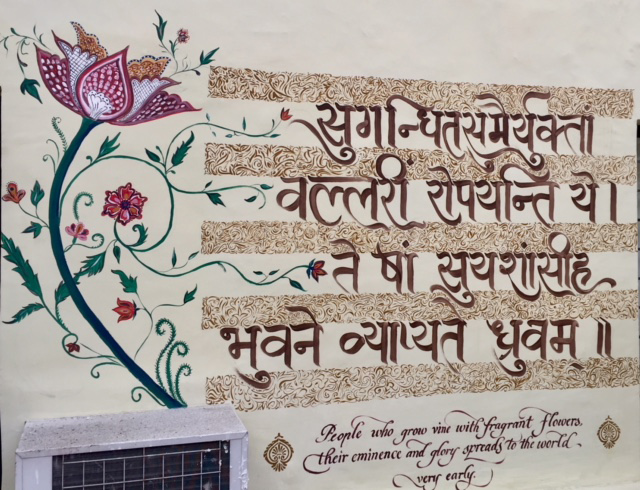 सुगन्धितसुमैर्युक्तां
वल्लरीं रोपयन्ति ये।
ते षां सुयशांसीह
भुवने व्याप्यते ध्रुवम्॥
People who grow vine with fragrant flowers,
their eminence and glory spreads to the world
very early.